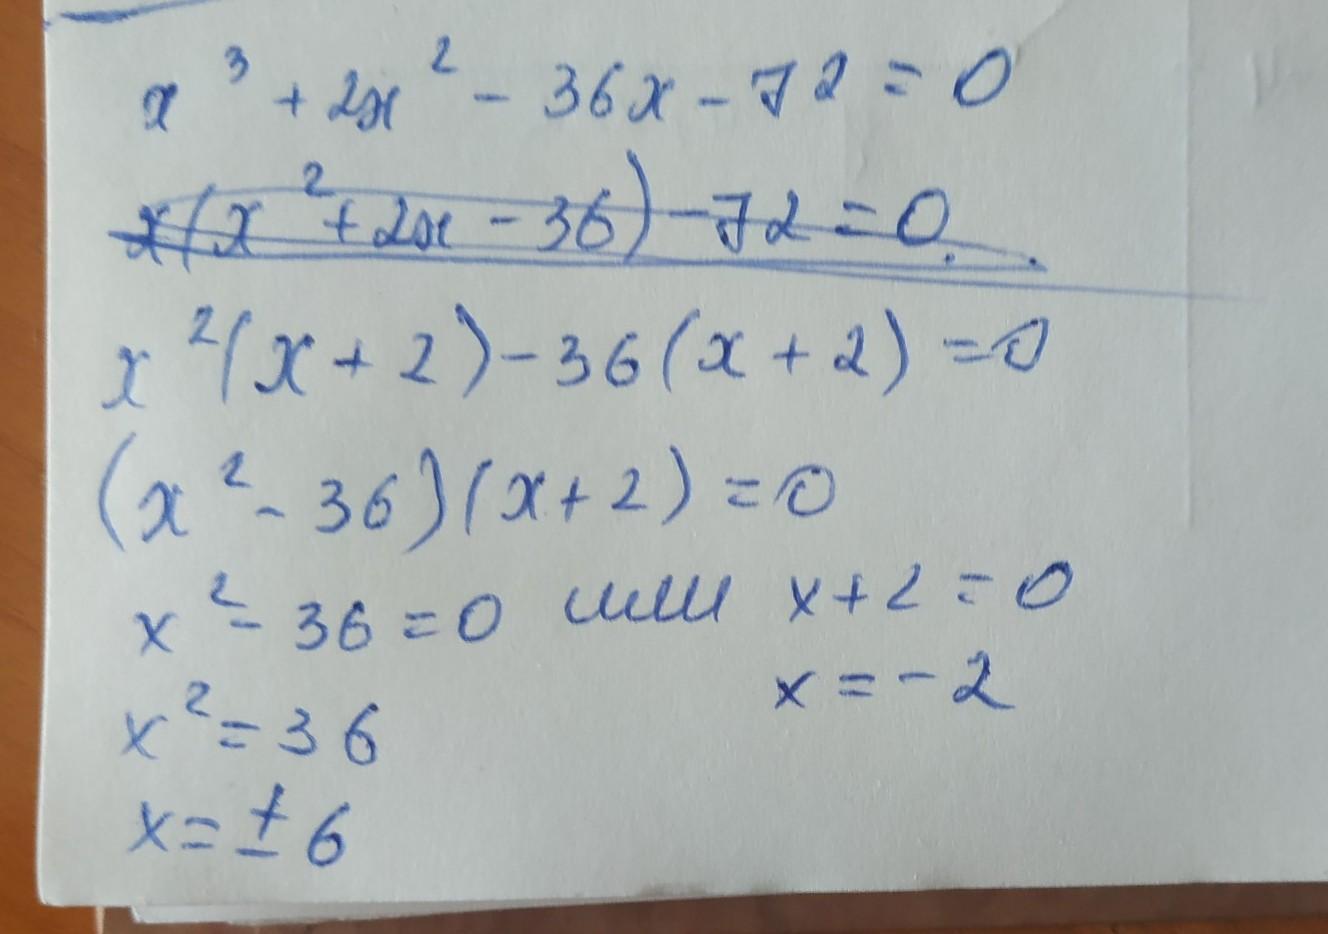 x³ + 2x² - 36x - 72 = 0
x(x² + 2x - 36) - 72 = 0
x²(x + 2) - 36(x + 2) = 0
(x² - 36)(x + 2) = 0
x² - 36 = 0 или x + 2 = 0
x = -2
x² = 36
x = ± 6